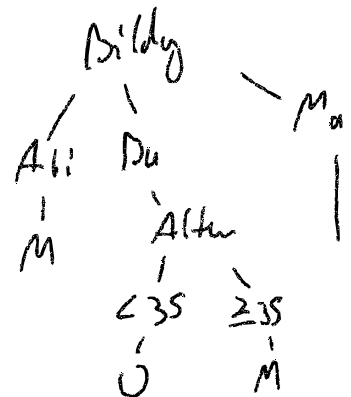 Bildg
Abi Ba Ma
M Alter
<35 ≥35
U M